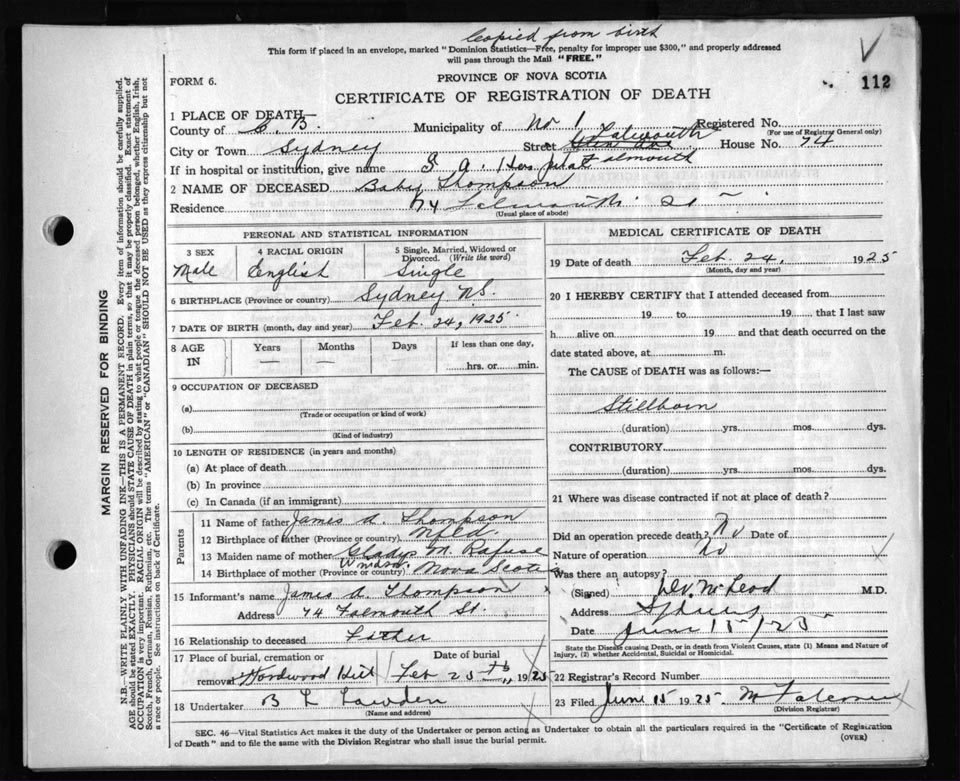 Copied from birth
This form if placed in an envelope, marked "Dominion Statistics—Free, penalty for improper use $300," and properly addressed
will pass through the Mail "FREE."
FORM 6.
PROVINCE OF NOVA SCOTIA
112
CERTIFICATE OF REGISTRATION OF DEATH
1 PLACE OF DEATH—
County of C. B. Municipality of No 1 Registered No.
(For use of Registrar General only)
City or Town Sydney Street Falmouth House No. 74
If in hospital or institution, give name Falmouth
2 NAME OF DECEASED Baby Thompson
Residence 74 Falmouth St
(Usual place of abode)
PERSONAL AND STATISTICAL INFORMATION
3 SEX 4 RACIAL ORIGIN 5 Single, Married, Widowed or Divorced. (Write the word)
Male English Single
6 BIRTHPLACE (Province or country) Sydney N.S.
7 DATE OF BIRTH (month, day and year) Feb. 24, 1925
8 AGE IN Years Months Days If less than one day,
— — hrs. or min.
9 OCCUPATION OF DECEASED
(a)
(Trade or occupation or kind of work)
(b)
(Kind of industry)
10 LENGTH OF RESIDENCE (in years and months)
(a) At place of death
(b) In province
(c) In Canada (if an immigrant)
Parents
11 Name of father James A. Thompson
12 Birthplace of father (Province or country) Nfld.
13 Maiden name of mother Gladys M. Rafuse
14 Birthplace of mother (Province or country) Windsor Nova Scotia
15 Informant's name James A. Thompson
Address 74 Falmouth St.
16 Relationship to deceased Father
17 Place of burial, cremation or removal Hardwood Hill Date of burial Feb 25th 1925
18 Undertaker B L Lowden
(Name and address)
MEDICAL CERTIFICATE OF DEATH
19 Date of death Feb. 24, 1925
(Month, day and year)
20 I HEREBY CERTIFY that I attended deceased from
19 to 19 that I last saw
h alive on 19 and that death occurred on the
date stated above, at m.
The CAUSE of DEATH was as follows:—
Stillborn
(duration) yrs. mos. dys.
CONTRIBUTORY
(duration) yrs. mos. dys.
21 Where was disease contracted if not at place of death?
Did an operation precede death? No Date of
Nature of operation No
Was there an autopsy?
(Signed) McLeod M.D.
Address Sydney
Date June 15/25
State the Disease causing Death, or in death from Violent Causes, state (1) Means and Nature of Injury, (2) whether Accidental, Suicidal or Homicidal.
22 Registrar's Record Number
23 Filed June 15 1925
(Division Registrar)
SEC. 46—Vital Statistics Act makes it the duty of the Undertaker or person acting as Undertaker to obtain all the particulars required in the "Certificate of Registration
of Death" and to file the same with the Division Registrar who shall issue the burial permit.
(OVER)
MARGIN RESERVED FOR BINDING
N.B.—WRITE PLAINLY WITH UNFADING INK—THIS IS A PERMANENT RECORD. Every item of information should be carefully supplied.
AGE should be stated EXACTLY. PHYSICIANS should STATE CAUSE OF DEATH in plain terms, so that it may be properly classified. Exact statement of
OCCUPATION is very important. RACIAL ORIGIN will be described by stating to what people or tongue the deceased person belonged, whether English, Irish,
Scotch, French, German, Russian, Ruthenian, etc. The terms "AMERICAN" or "CANADIAN" SHOULD NOT BE USED as they express citizenship but not
a race or people. See instructions on back of Certificate.